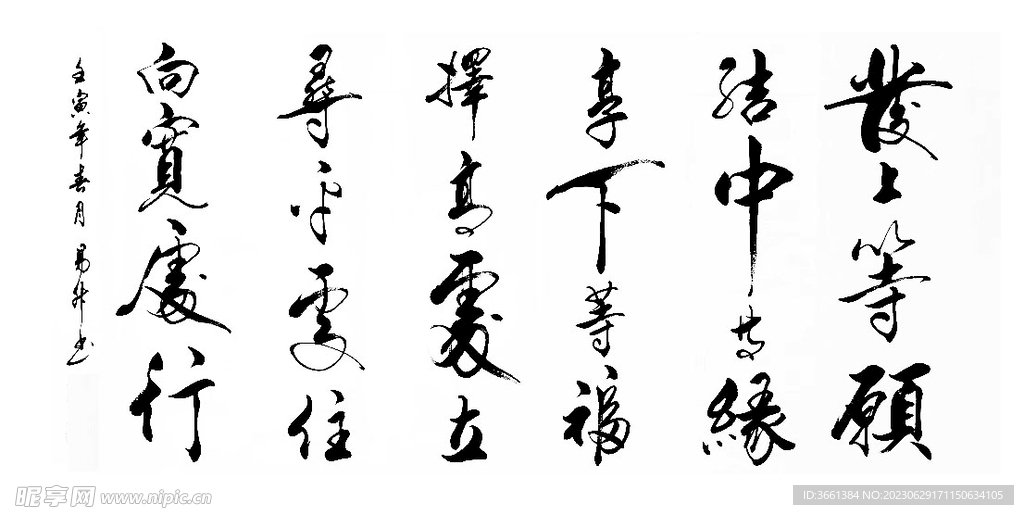 發上等願
結中等緣
享下等福
擇高處立
尋平處住
向寬處行
壬寅年春月易升书
昵享网 www.nipic.cn
ID:3661384 NO:20230629171150634105